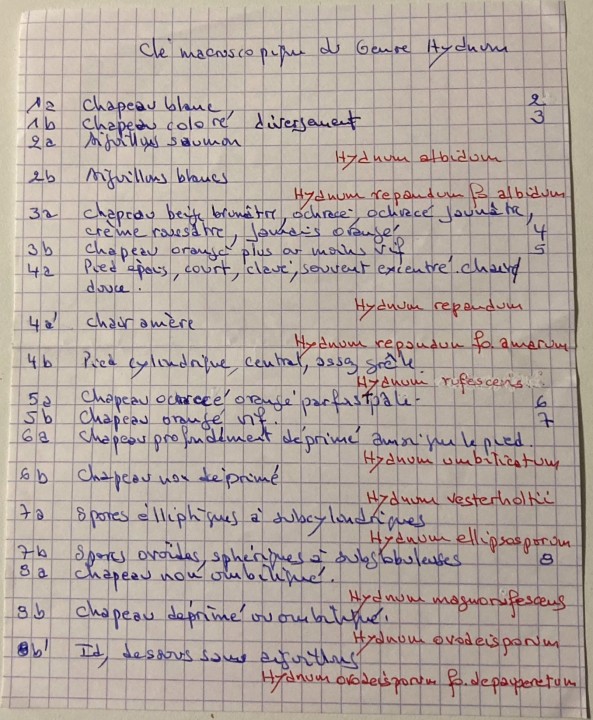 Clé macroscopique du Genre Hydnum
1a Chapeau blanc 2
1b Chapeau coloré diversement 3
2a Aiguillons saumon
Hydnum albidum
2b Aiguillons blancs
Hydnum repandum fo albidum
3a Chapeau beige brunâtre, ochracé, ochracé jaunâtre,
crème rosâtre, jamais orangé 4
3b Chapeau orangé plus ou moins vif 5
4a Pied épais, court, clavé, souvent excentré. Chair
douce.
Hydnum repandum
4a' Chair amère
Hydnum repandum fo. amarum
4b Pied cylindrique, central, assez grêle.
Hydnum rufescens.
5a Chapeau ochracé orangé parfois pâle. 6
5b Chapeau orangé vif. 7
6a Chapeau profondément déprimé ainsi que le pied.
Hydnum umbilicatum
6b Chapeau non déprimé
Hydnum vesterholtii
7a Spores élliptiques à subcylindriques
Hydnum ellipsosporum
7b Spores ovoïdes, sphériques à subglobuleuses 8
8a Chapeau non ombiliqué.
Hydnum magnorufescens
8b Chapeau déprimé ou ombiliqué.
Hydnum ovoideisporum
8b' Id, dessous sans aiguillons
Hydnum ovoideisporum fo. depauperatum